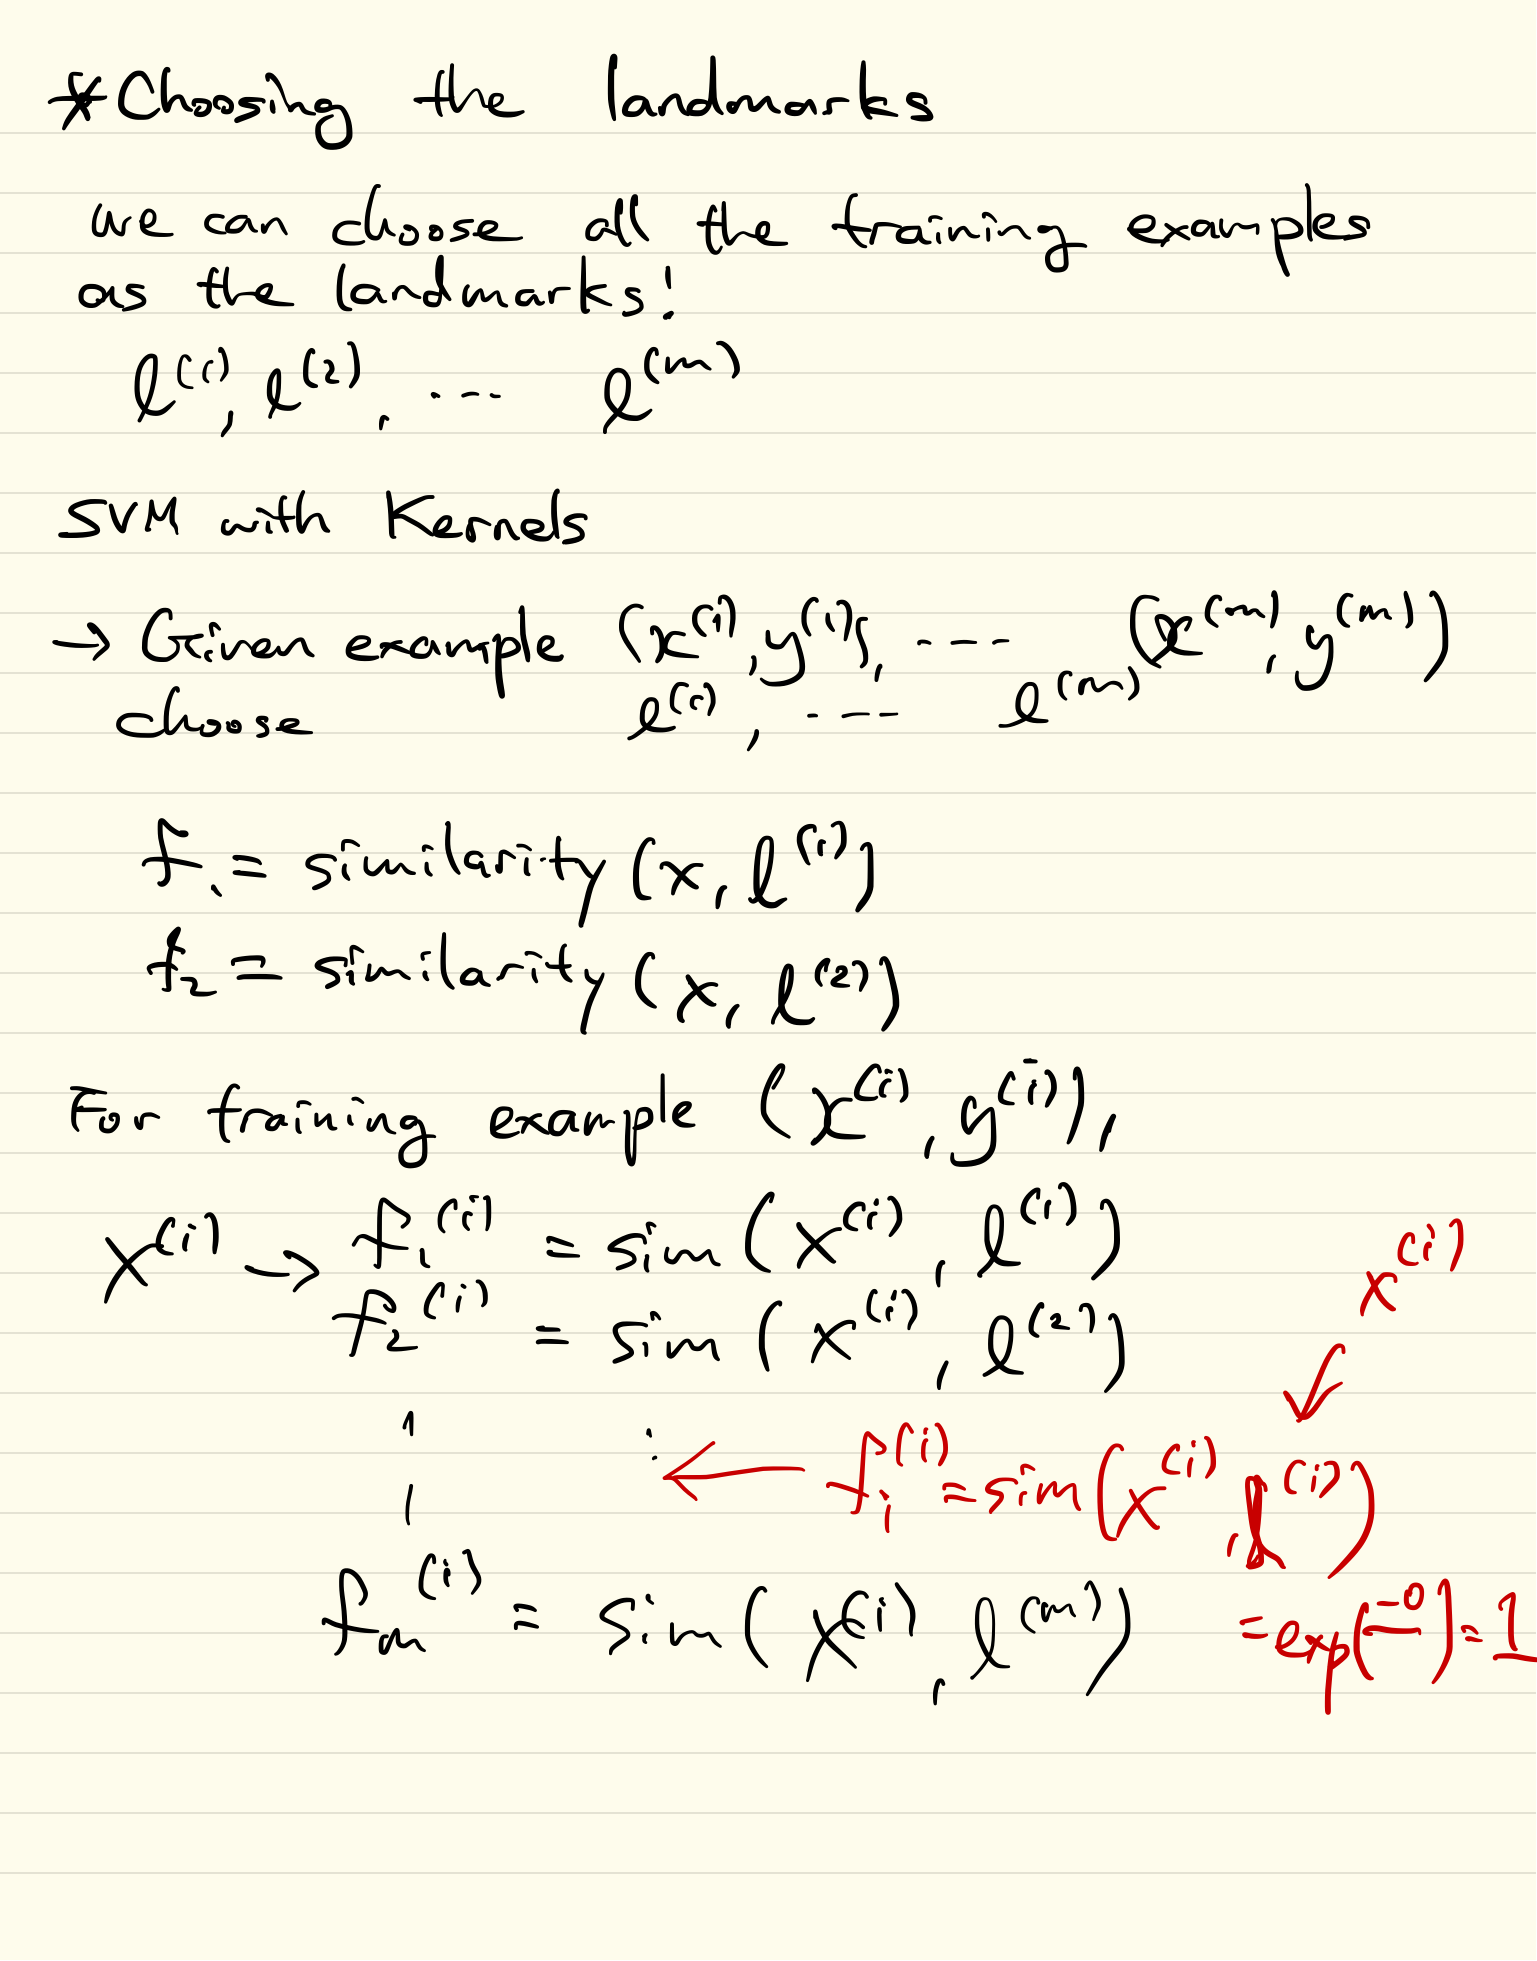 *Choosing the landmarks
we can choose all the training examples
as the landmarks!
l^(1), l^(2), ... l^(m)
SVM with Kernels
→ Given example (x^(1), y^(1)), .... (x^(m), y^(m))
choose l^(1), .... l^(m)
f₁ = similarity (x, l^(1))
f₂ = similarity (x, l^(2))
For training example (x^(i), y^(i)),
x^(i) → f₁^(i) = sim (x^(i), l^(1))
x^(i)
f₂^(i) = sim (x^(i), l^(2))
← f_i^(i) = sim(x^(i), l^(i))
f_m^(i) = sim (x^(i), l^(m))
= exp(-0/ ) = 1